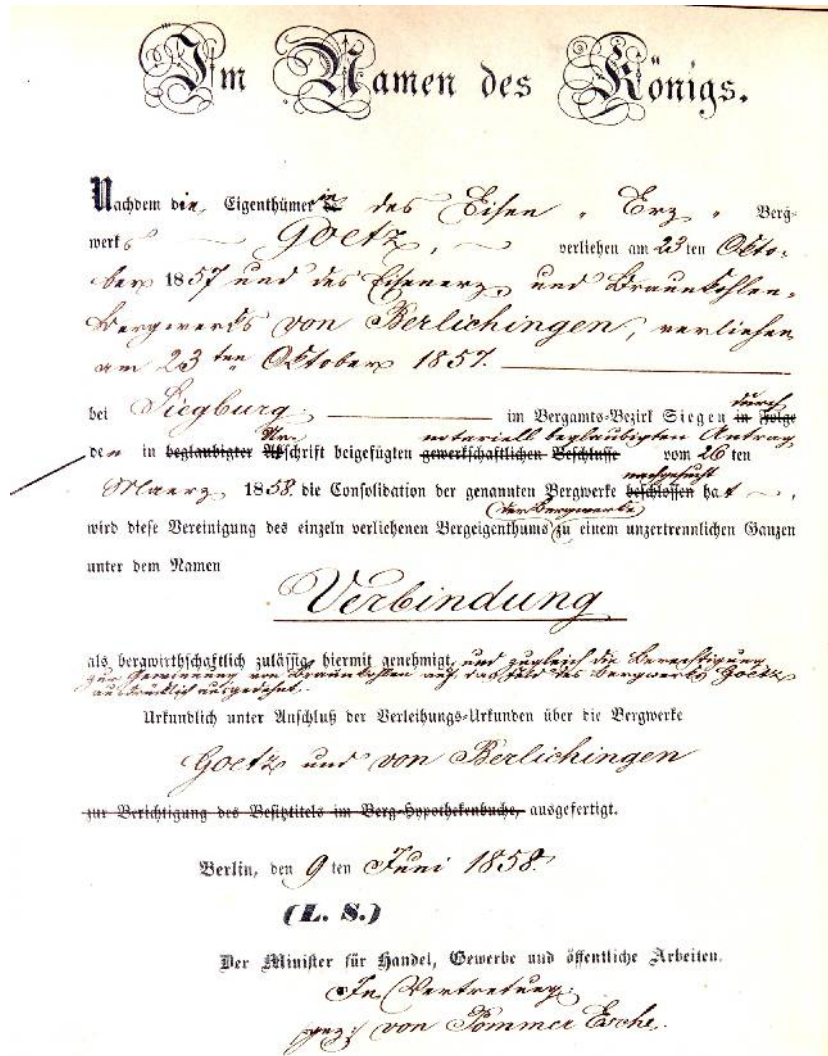 Im Namen des Königs.
Nachdem die Eigenthümerin des Eisen " Erz " Berg-
werks Goetz, verliehen am 23 ten Okto-
ber 1857 und des Eisenerz und Braunkohlen-
Bergwerks von Berlichingen, verliehen
am 23 ten Oktober 1857.
durch
bei Siegburg im Bergamts-Bezirk Siegen in Folge
Ur- notariell beglaubigten Antrag
den in beglaubigter Abschrift beigefügten gewerkschaftlichen Beschlusse vom 26 ten
nachgesucht
Maerz 1858 die Consolidation der genannten Bergwerke beschlossen hat,
der Bergwerke
wird diese Vereinigung des einzeln verliehenen Bergeigenthums zu einem unzertrennlichen Ganzen
unter dem Namen
Verbindung
als bergwirthschaftlich zulässig, hiermit genehmigt, und zugleich die Berechtigung
zur Gewinnung von Braunkohlen auf das Feld des Bergwerks Goetz
ausdrücklich ausgedehnt.
Urkundlich unter Anschluß der Verleihungs-Urkunden über die Bergwerke
Goetz und von Berlichingen
zur Berichtigung des Besitztitels im Berg-Hypothekenbuche, ausgefertigt.
Berlin, den 9 ten Juni 1858.
(L. S.)
Der Minister für Handel, Gewerbe und öffentliche Arbeiten.
In Vertretung:
gez: von Pommer Esche.